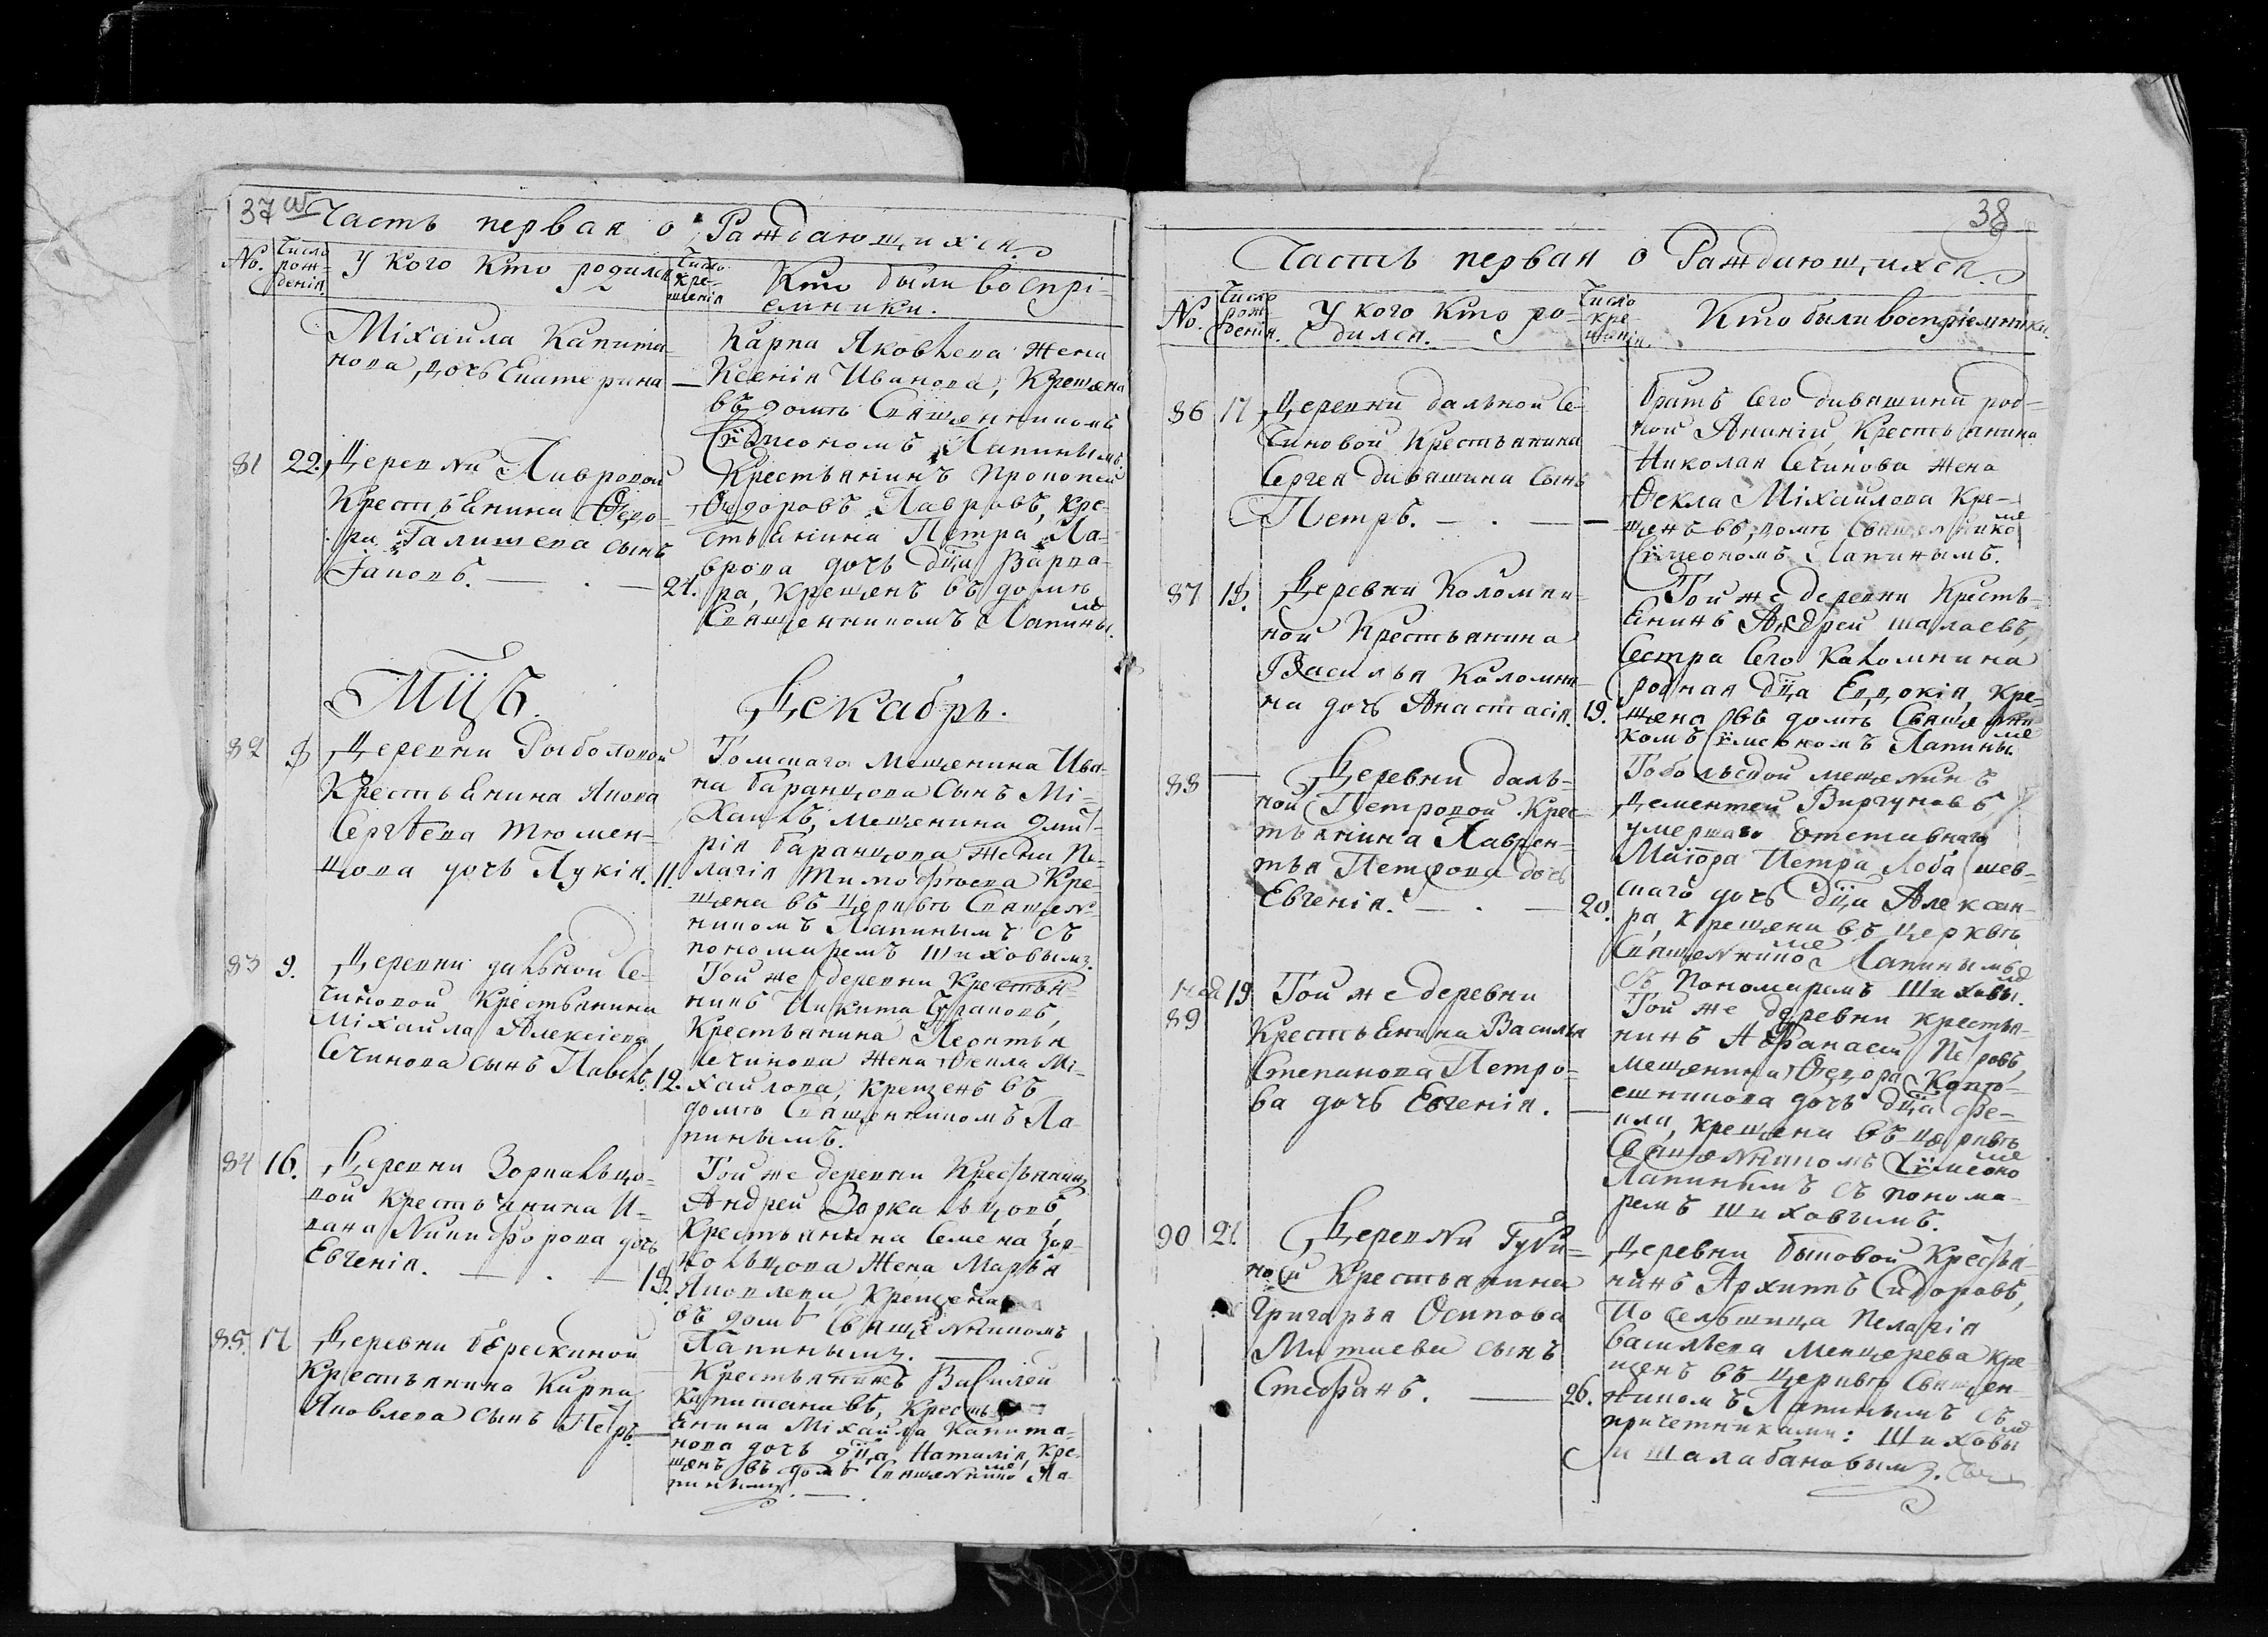 37 об
Часть первая о Раждающихся.
No.
Число рож-
денія.
У кого кто родился
Число кре-
щенія
Кто были воспрі-
емники.
Михаила Капита-
нова, дочь Екатерина —
Карпа Яковлева жена
Ксенія Иванова, Крещена
въ домѣ Священникомъ
Сѵмеономъ Лапинымъ.
81 22.
Деревни Лавровой
Крестьянина Ѳедо-
ра Галишева сынъ
Іаковъ. — . — 24.
Крестьянинъ Прокопей
Ѳедоровъ Лавровъ, кре-
стьянина Петра Ла-
врова дочь дѣца Варва-
ра, крещенъ въ домѣ
Священникомъ Лапинымъ.
Мцъ. Декабрь.
82 8
Деревни Рыболовой
Крестьянина Якова
Сергѣева Тюмен-
цова дочь Лукія. 11.
Томскаго мещенина Ива-
на баранцова Сынъ Ми-
хаилъ, мещенина Дмит-
рія баранцова жена Пе-
лагія Тимофѣева Кре-
щена въ церквѣ Священ-
никомъ Лапинымъ съ
пономаремъ Шиховымъ.
83 9.
Деревни дальной Се-
чиновой Крестьянина
Михаила Алексіева
Сечинова сынъ Павелъ. 12.
Той же деревни Крестья-
нинъ Никита
Крестьянина Леонтья
Сечинова жена Ѳекла Ми-
хайлова, крещенъ въ
домѣ Священникомъ Ла-
пинымъ.
84 16.
Деревни Зоркальцо-
вой Крестьянина И-
вана Никифорова дочь
Евгенія. — . — 18.
Той же деревни Крестьянинъ
Андрей Зоркальцовъ,
Крестьянина Семена Зор-
кольцова жена Марья
Яковлева, Крещена
въ домѣ Священникомъ
Лапинымъ.
85. 17
Деревни берескиной
Крестьянина Карпа
Яковлева сынъ Петръ. —
Крестьянинъ Василей
Капитановъ, Кресть-
янина Михайла Капита-
нова дочь дѣца Наталія, Кре-
щенъ въ домѣ Священникомъ Ла-
пинымъ. — .
38
Часть первая о Раждающихся.
No.
Число рож-
денія.
У кого кто ро-
дился.
Число
кре-
щенія.
Кто были воспріемники.
86 17
Деревни дальной Се-
чиновой Крестьянина
Сергея дивашина Сынъ
Петръ. — . — —
братъ Сего дивашина род-
ной Ананій, Крестьянина
Николая Сечинова жена
Ѳекла Михайлова Кре-
щенъ въ домѣ Священникомъ
Сѵмеономъ Лапинымъ.
87 18.
Деревни Коломни-
ной Крестьянина
Василья Коломни-
на дочь Анастасія. 19.
Той же деревни Кресть-
янинъ Андрей шалаевъ,
Сестра Сего Коломнина
родная дѣца Евдокія, кре-
щена въ домѣ Священни-
комъ Сѵмеономъ Лапинымъ
88 —
Деревни даль-
ной Петровой Крес-
тьянина Лаврен-
тья Петрова дочь
Евгенія. — . — 20.
Тобольской мещенинъ
Дементей Виргуновъ
умершаго отставнаго
Маіора Петра Лобашев-
скаго дочь дѣца Алексан-
ра, крещена въ церквѣ
Священникомъ Лапинымъ
съ Пономаремъ Шиховымъ.
89 19
Той же деревни
Крестьянина Василья
Степанова Петро-
ва дочь Евгенія. —
Той же деревни крестья-
нинъ Афанасей Петровъ,
мещенина Ѳедора
дочь дѣца
крещена въ церквѣ
Священникомъ Сѵмеономъ
Лапинымъ съ понома-
ремъ Шиховымъ.
90 21.
Деревни Губи-
ной Крестьянина
Григорья Осипова
сынъ
Стефанъ. — 26.
Деревни бытовой Крестья-
нинъ Архипъ Сидоровъ,
Посельщица Пелагія
васильева Мещерева кре-
щенъ въ церквѣ Священ-
никомъ Лапинымъ съ
причетниками: Шиховымъ
и Шалабановымъ.